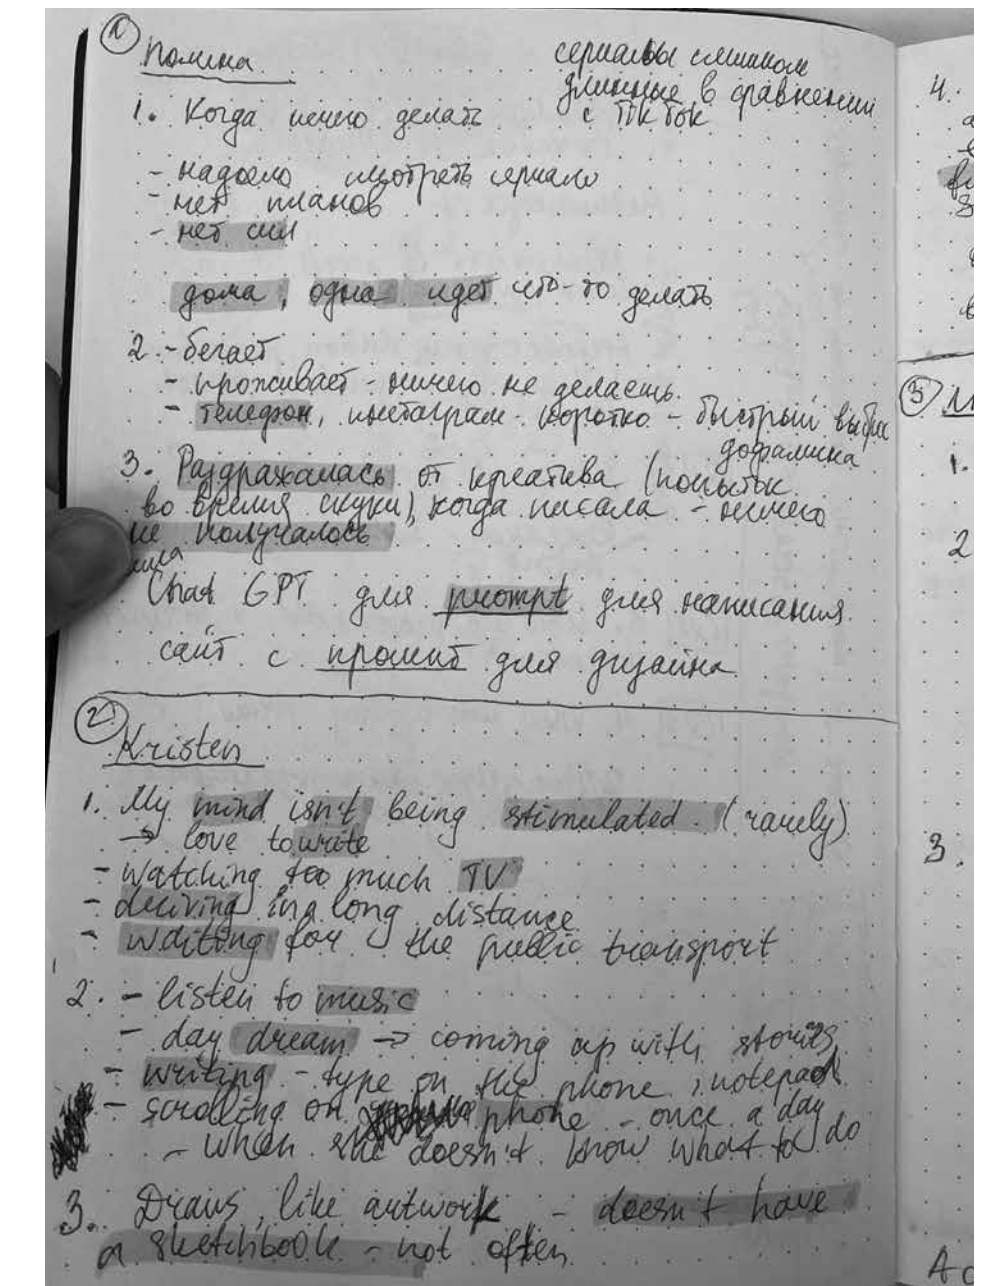 1
Полина
сериалы слишком
длинные в сравнении
с ТикТок
1. Когда нечего делать
- надоело смотреть сериало
- нет планов
- нет сил
дома, одна идет что-то делать
2. - бегает
- проживает - ничего не делаешь.
- телефон, инстаграм - коротко - быстрый выброс
дофамина
3. Раздражалась от креатива (попыток
во время скуки), когда писала - ничего
не получалось
Chat GPT для prompt для написания
сайт с промпт для дизайна
2
Kristen
1. My mind isn't being stimulated (rarely)
→ love to write
- watching too much TV
- driving in a long distance
- waiting for the public transport
2. - listen to music
- day dream → coming up with stories
- writing - type on the phone, notepad
- scrolling on phone - once a day
- when she doesn't know what to do
3. Draws, like artwork - doesn't have
a sketchbook - not often
4.
3
1.
2
3.